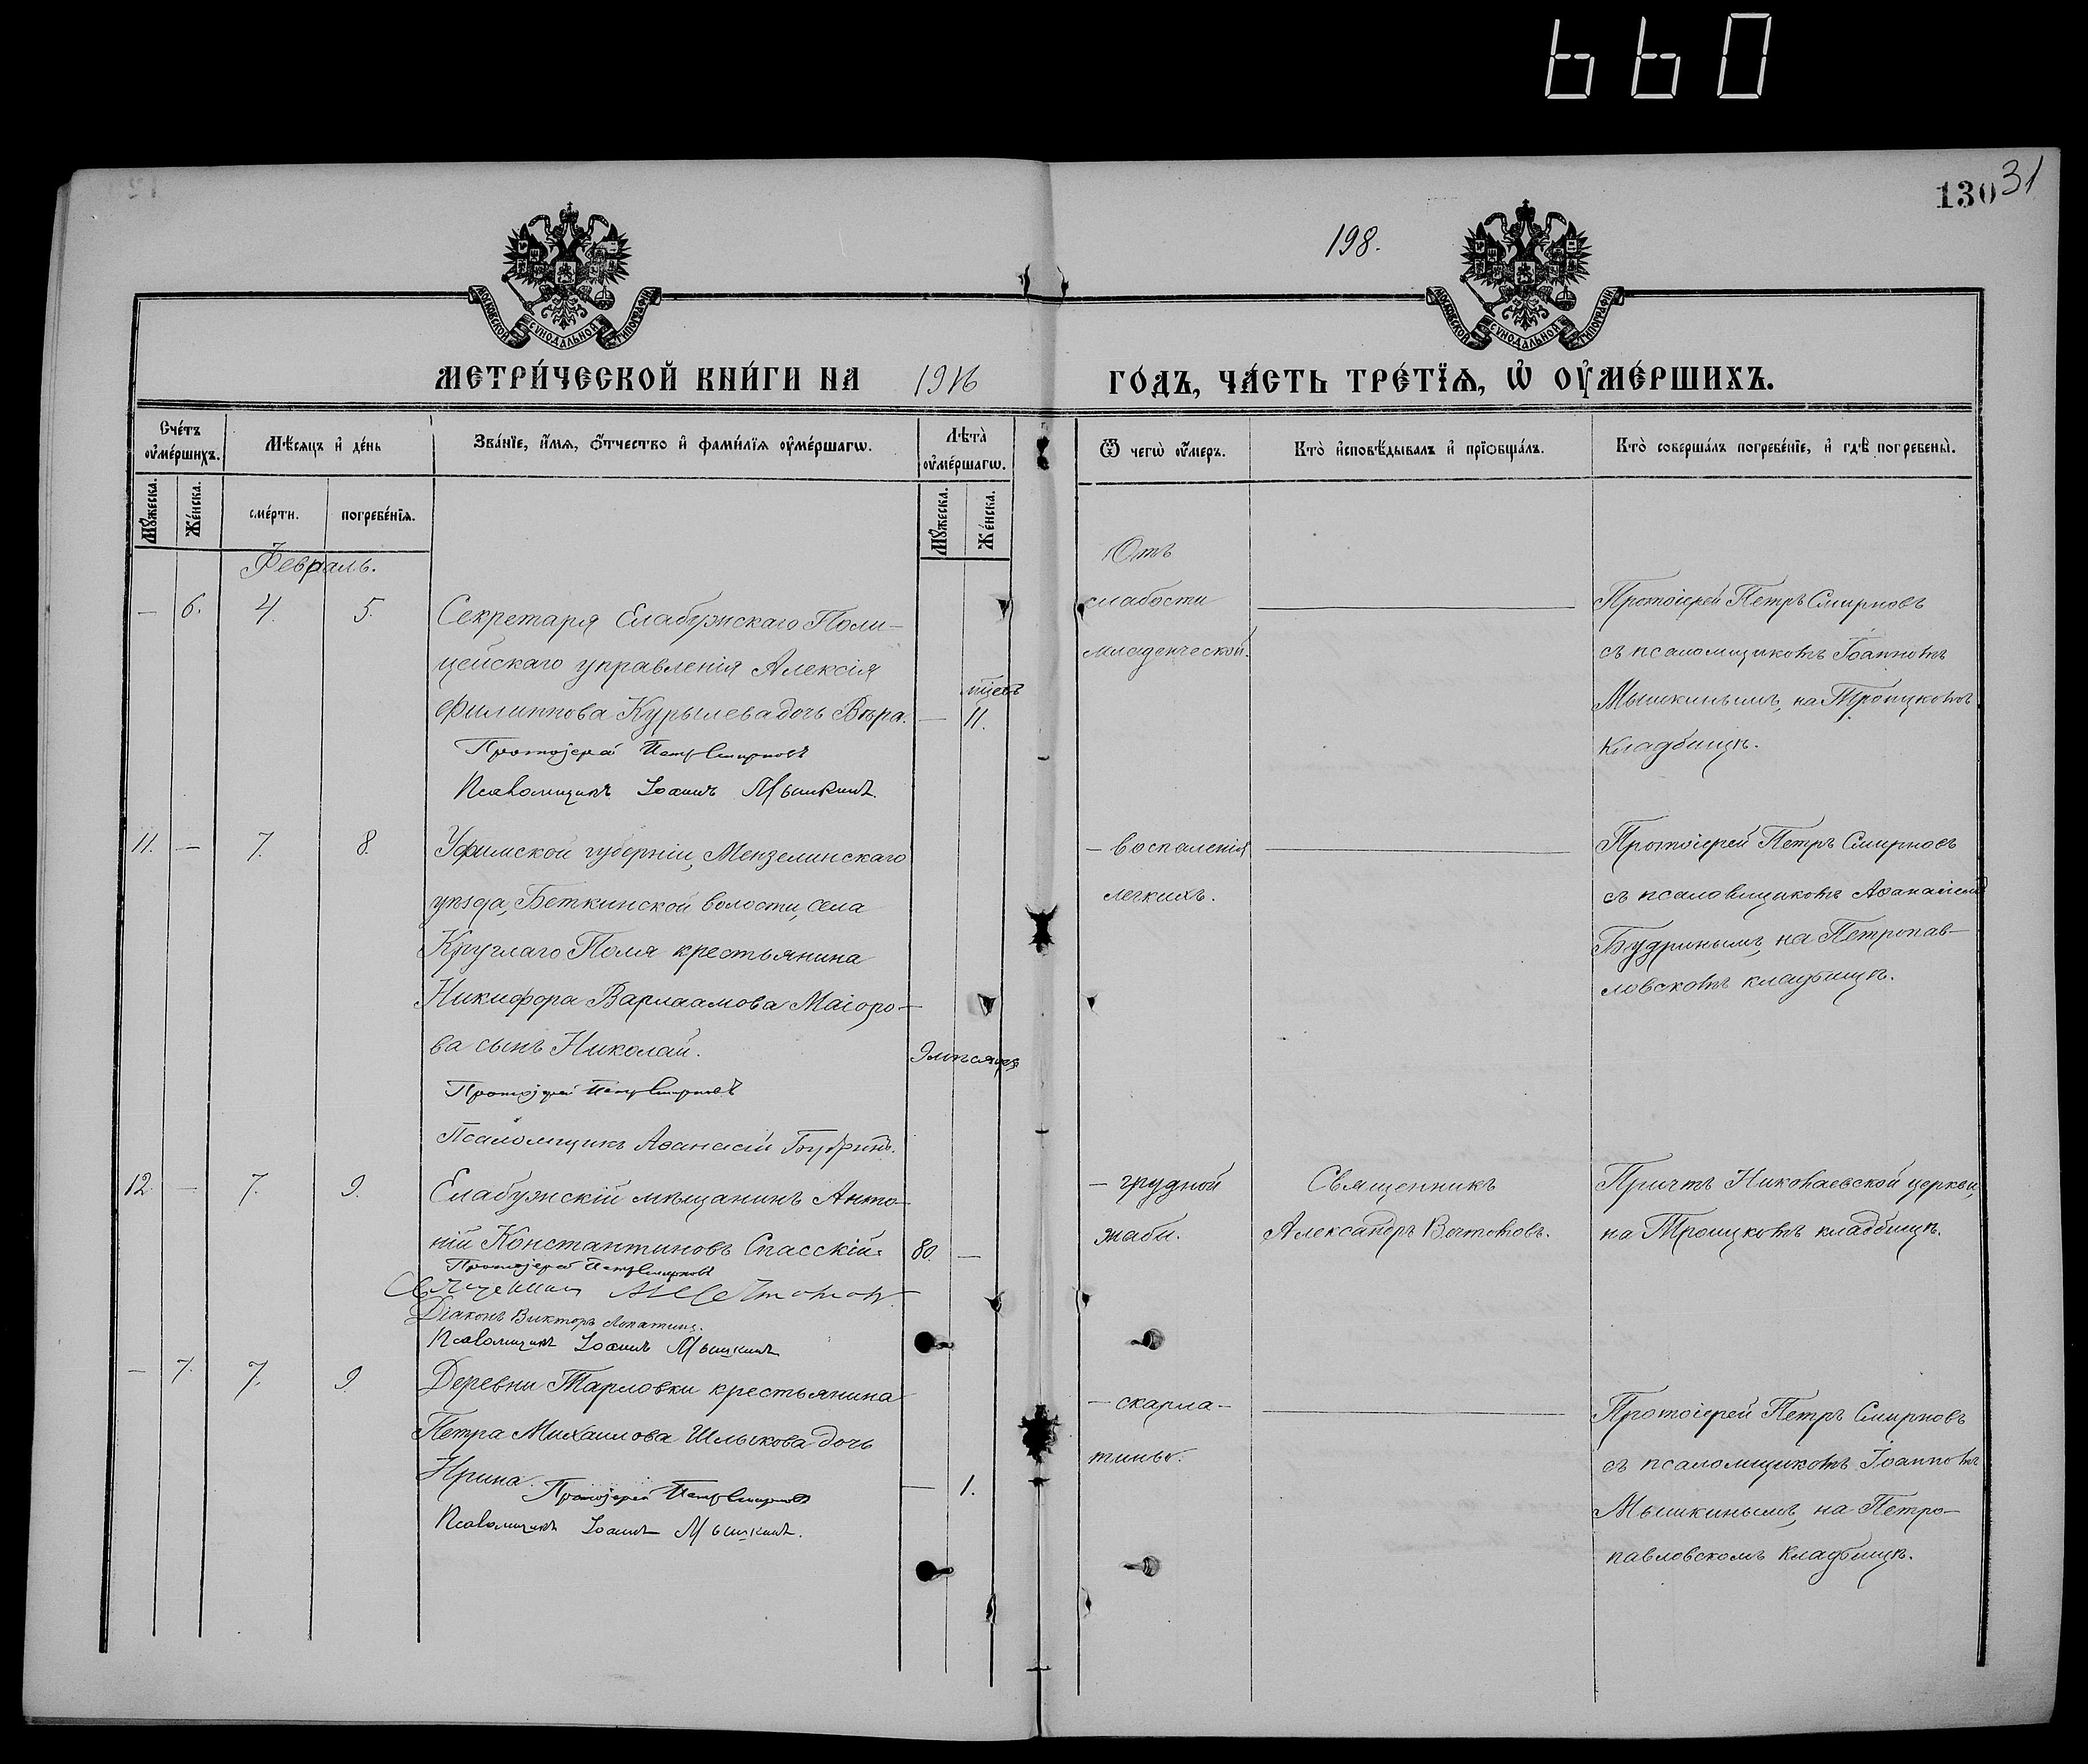 660
130 31
198.
МОСКОВСКОЙ СѴНОДАЛЬНОЙ ТИПОГРАФІИ
МОСКОВСКОЙ СѴНОДАЛЬНОЙ ТИПОГРАФІИ
МЕТРИ́ЧЕСКОЙ КНИ́ГИ НА 1916 ГО́ДЪ, ЧА́СТЬ ТРЕ́ТЇѦ, Ѡ҆ ОУ҆МЕ́РШИХЪ.
Сче́тъ оу҆ме́ршихъ.
Мꙋ́жеска.
Же́нска.
Мѣ́сѧцъ и҆ де́нь
сме́рти.
погребе́нїѧ.
Зва́нїе, и҆́мѧ, ѻ҆́тчество и҆ фами́лїѧ оу҆ме́ршагѡ.
Лѣ̀та оу҆ме́ршагѡ.
Мꙋ́жеска.
Же́нска.
Ѿ чегѡ̀ оу҆́меръ.
Кто̀ и҆сповѣ́дывалъ и҆ прїѻбща́лъ.
Кто̀ соверша́лъ погребе́нїе, и҆ гдѣ̀ погребены̀.
Февраль.
— 6. 4. 5.
Секретаря Елабужскаго Поли-
цейскаго управленія Алексія
Филиппова Курылева дочь Вѣра.
— мѣс. 11.
Протоіерей Петръ Смирновъ
Псаломщикъ Іоаннъ Мышкинъ.
Отъ
слабости
младенческой.
Протоіерей Петръ Смирновъ
съ псаломщикомъ Іоанномъ
Мышкинымъ, на Троицкомъ
кладбищѣ.
11. — 7. 8.
Уфимской губерніи, Мензелинскаго
уѣзда, Беткинской волости, села
Круглаго Поля крестьянина
Никифора Варлаамова Маіоро-
ва сынъ Николай.
9 мѣсяцев
Протоіерей Петръ Смирновъ
Псаломщикъ Аѳанасій Будринъ.
— воспаленія
легкихъ.
Протоіерей Петръ Смирновъ
съ псаломщикомъ Аѳанасіемъ
Будринымъ, на Петропав-
ловскомъ кладбищѣ.
12. — 7. 9.
Елабужскій мѣщанинъ Анто-
ній Константиновъ Спасскій.
80. —
Протоіерей Петръ Смирновъ
Священникъ
Діаконъ Викторъ Лопатинъ.
Псаломщикъ Іоаннъ Мышкинъ
— грудной
жабы.
Священникъ
Александръ
Причтъ Николаевской церкви,
на Троицкомъ кладбищѣ.
— 7. 7. 9.
Деревни Тарловки крестьянина
Петра Михаилова Шлыкова дочь
Ирина.
— 1.
Протоіерей Петръ Смирновъ
Псаломщикъ Іоаннъ Мышкинъ.
— скарла-
тины.
Протоіерей Петръ Смирновъ
съ псаломщикомъ Іоанномъ
Мышкинымъ, на Петро-
павловскомъ кладбищѣ.